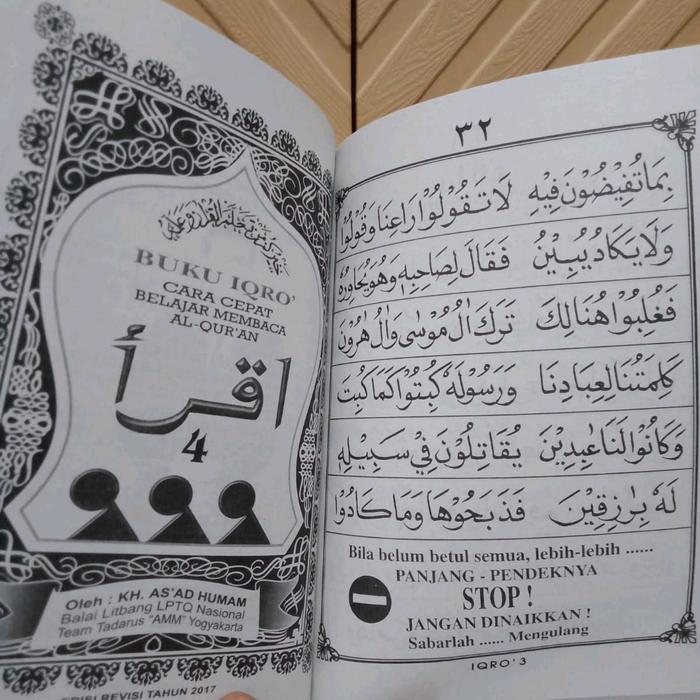 خيركم من تعلم القرآن وعلمه
BUKU IQRO'
CARA CEPAT
BELAJAR MEMBACA
AL-QUR'AN
اقرأ
4
Oleh : KH. AS'AD HUMAM
Balai Litbang LPTQ Nasional
Team Tadarus "AMM" Yogyakarta
EDISI REVISI TAHUN 2017
٣٢
بِمَا تُفِيْضُوْنَ فِيْهِ لَا تَقُوْلُوْا رَاعِنَا وَقُوْلُوا
وَلَا يَكَادُ يُبِيْنُ فَقَالَ لِصَاحِبِهٖ وَهُوَ يُحَاوِرُهٗ
فَغُلِبُوْا هُنَالِكَ تَرَكَ اٰلُ مُوْسٰى وَاٰلُ هٰرُوْنَ
كَلِمَتُنَا لِعِبَادِنَا وَرَسُوْلَهٗ كُبِتُوْا كَمَا كُبِتَ
وَكَانُوْا لَنَا عٰبِدِيْنَ يُقَاتِلُوْنَ فِيْ سَبِيْلِهٖ
لَهٗ بِرٰزِقِيْنَ فَذَبَحُوْهَا وَمَا كَادُوْا
Bila belum betul semua, lebih-lebih ......
PANJANG - PENDEKNYA
STOP !
JANGAN DINAIKKAN !
Sabarlah ...... Mengulang
IQRO' 3